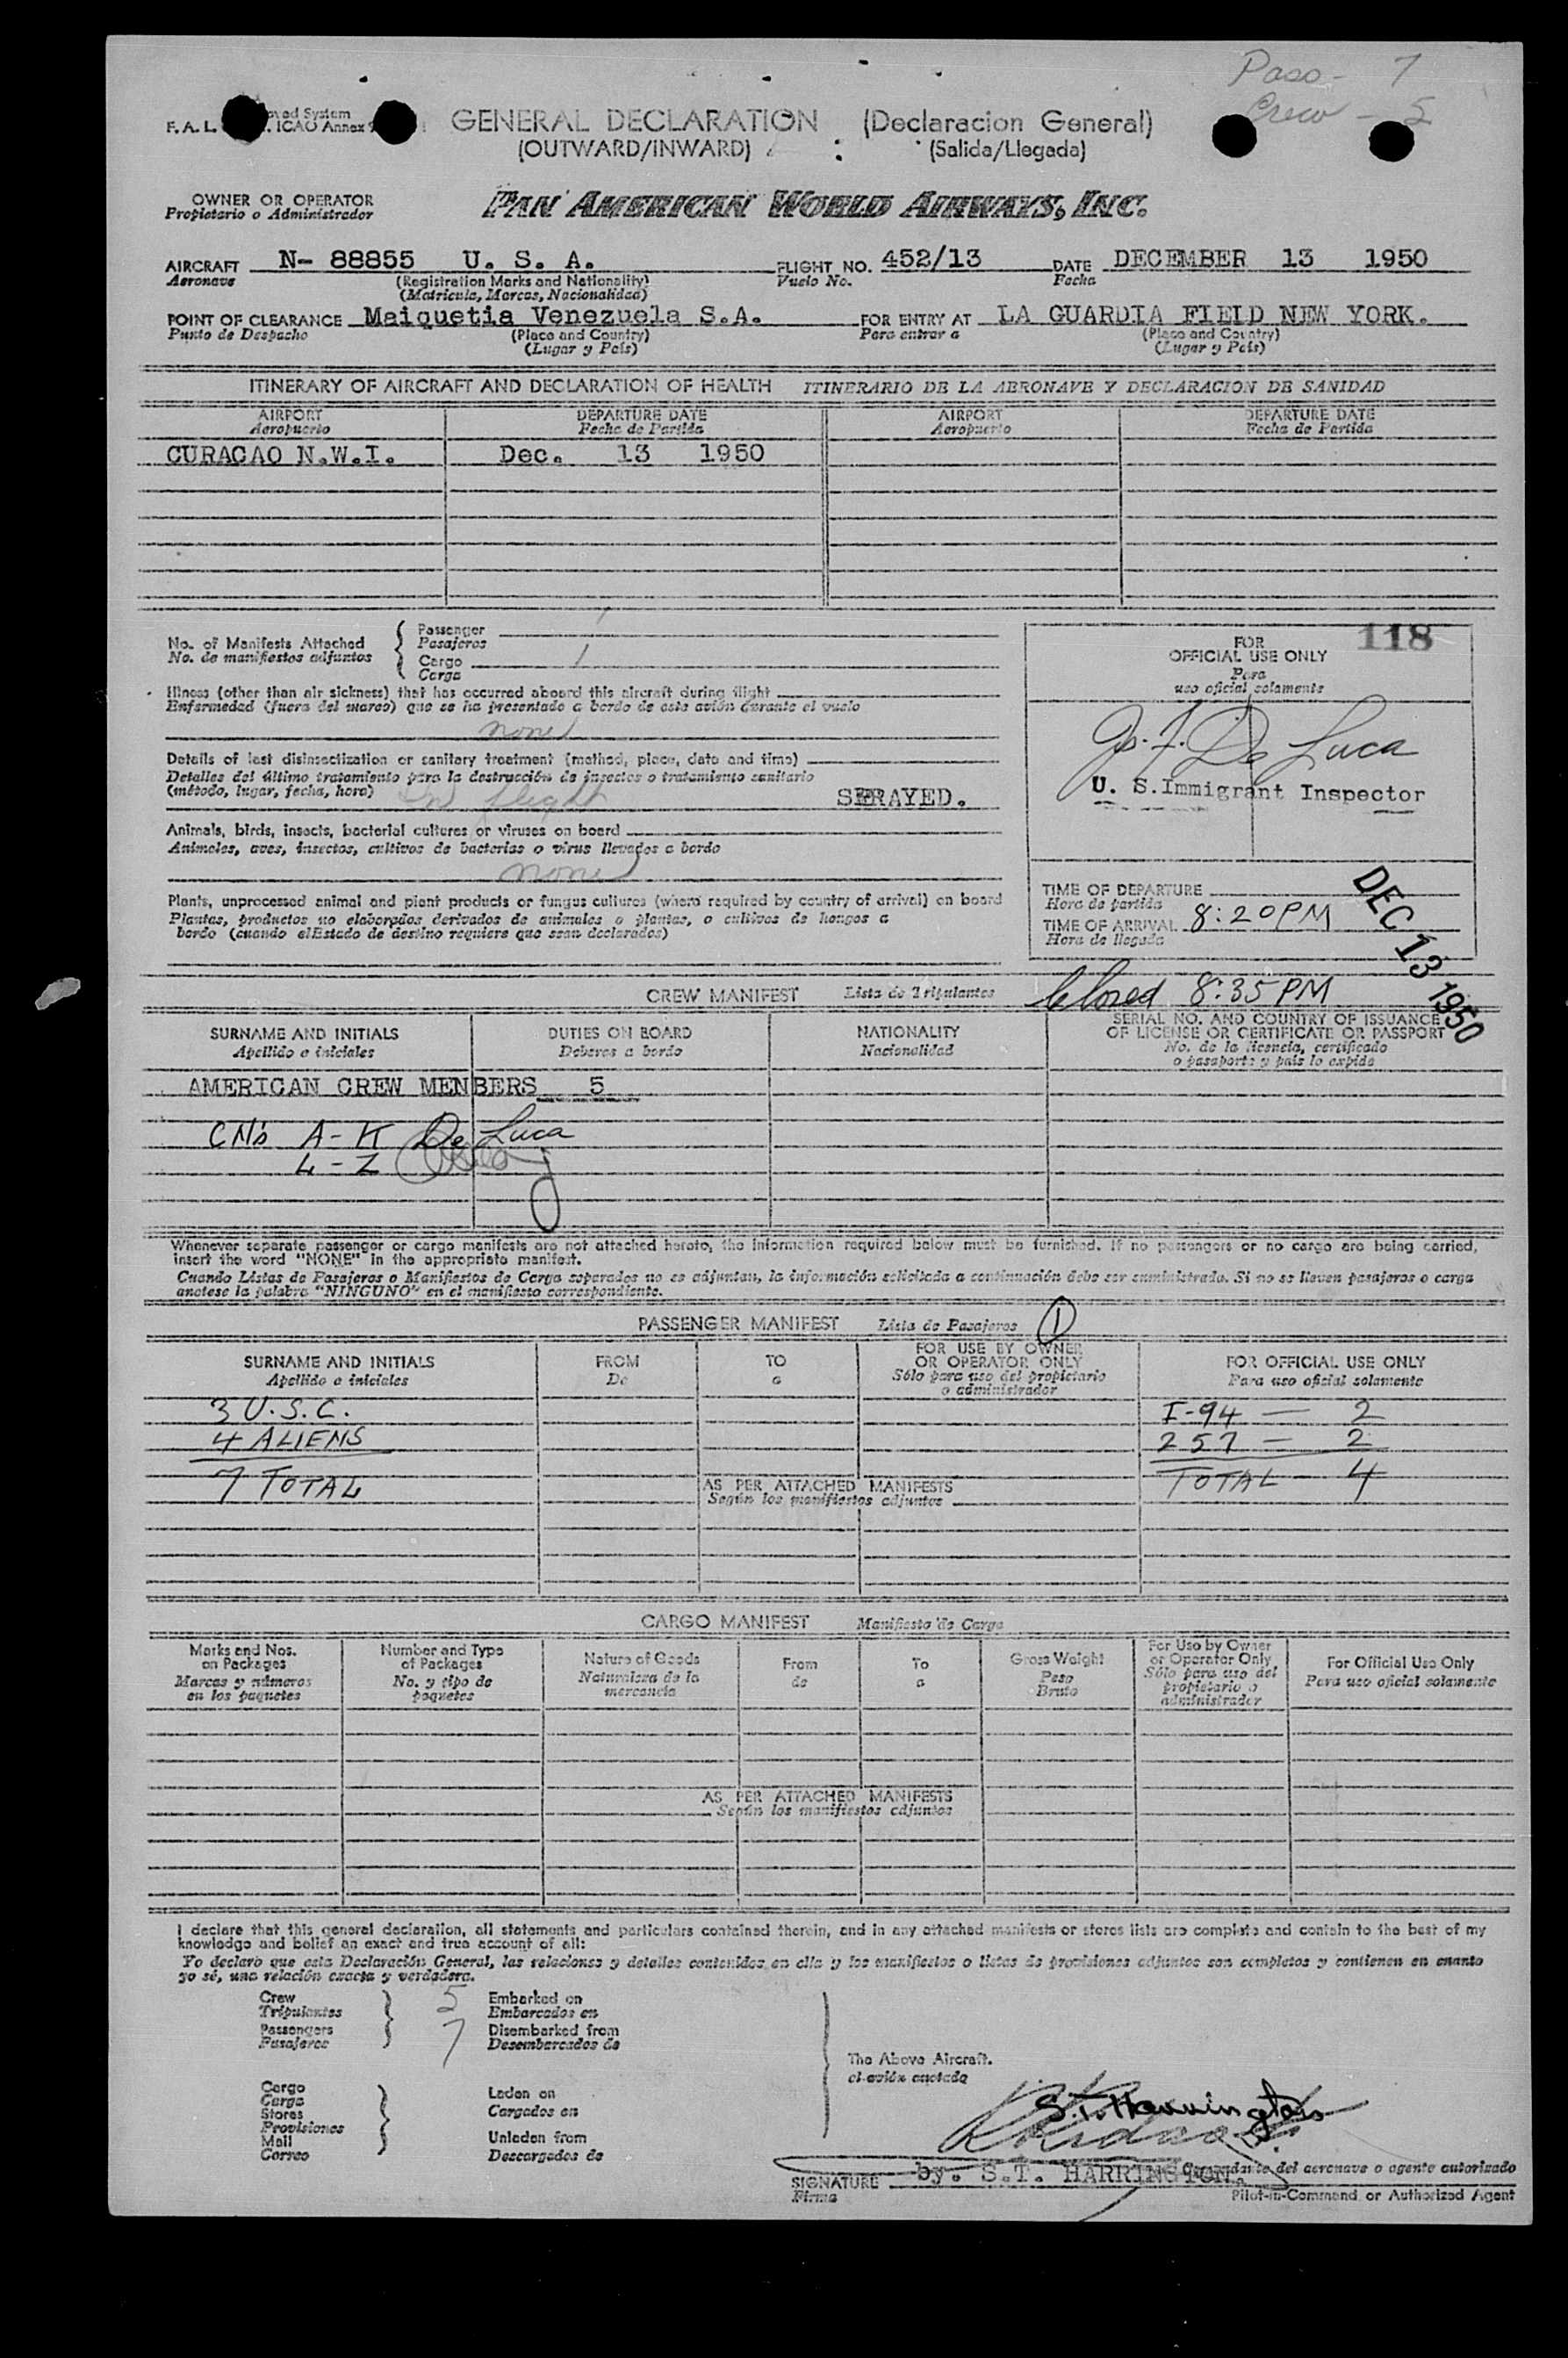 Pass - 7
Crew - 5
F. A. L. ICAO Annex 9
GENERAL DECLARATION (Declaracion General)
(OUTWARD/INWARD) (Salida/Llegada)
OWNER OR OPERATOR
Propietario o Administrador
PAN AMERICAN WORLD AIRWAYS, INC.
AIRCRAFT N- 88855 U. S. A. FLIGHT NO. 452/13 DATE DECEMBER 13 1950
Aeronave (Registration Marks and Nationality) Vuelo No. Fecha
(Matricula, Marcas, Nacionalidad)
POINT OF CLEARANCE Maiquetia Venezuela S.A. FOR ENTRY AT LA GUARDIA FIELD NEW YORK.
Punto de Despacho (Place and Country) Para entrar a (Place and Country)
(Lugar y País) (Lugar y País)
ITINERARY OF AIRCRAFT AND DECLARATION OF HEALTH ITINERARIO DE LA AERONAVE Y DECLARACION DE SANIDAD
AIRPORT DEPARTURE DATE AIRPORT DEPARTURE DATE
Aeropuerto Fecha de Partida Aeropuerto Fecha de Partida
CURACAO N.W.I. Dec. 13 1950
No. of Manifests Attached
No. de manifiestos adjuntos
Passenger
Pasajeros
Cargo 1
Carga
Illness (other than air sickness) that has occurred aboard this aircraft during flight
Enfermedad (fuera del mareo) que se ha presentado a bordo de este avión durante el vuelo
none
Details of last disinsectization or sanitary treatment (method, place, date and time)
Detalles del último tratamiento para la destrucción de insectos o tratamiento sanitario
(método, lugar, fecha, hora) In flight SPRAYED.
Animals, birds, insects, bacterial cultures or viruses on board
Animales, aves, insectos, cultivos de bacterias o virus llevados a bordo
none
Plants, unprocessed animal and plant products or fungus cultures (where required by country of arrival) on board
Plantas, productos no elaborados derivados de animales o plantas, o cultivos de hongos a
bordo (cuando el Estado de destino requiere que sean declarados)
FOR 118
OFFICIAL USE ONLY
Para
uso oficial solamente
De Luca
U. S. Immigrant Inspector
TIME OF DEPARTURE
Hora de partida
TIME OF ARRIVAL 8:20 PM
Hora de llegada
DEC 13 1950
Closed 8:35 PM
CREW MANIFEST Lista de Tripulantes
SURNAME AND INITIALS DUTIES ON BOARD NATIONALITY SERIAL NO. AND COUNTRY OF ISSUANCE
OF LICENSE OR CERTIFICATE OR PASSPORT
Apellido e iniciales Deberes a bordo Nacionalidad No. de la licencia, certificado
o pasaporte y país lo expide
AMERICAN CREW MENBERS 5
CN's A-K De Luca
L-Z
Whenever separate passenger or cargo manifests are not attached hereto, the information required below must be furnished. If no passengers or no cargo are being carried,
insert the word "NONE" in the appropriate manifest.
Cuando Listas de Pasajeros o Manifiestos de Carga separados no se adjuntan, la información solicitada a continuación debe ser suministrada. Si no se llevan pasajeros o carga
anotese la palabra "NINGUNO" en el manifiesto correspondiente.
PASSENGER MANIFEST Lista de Pasajeros 1
SURNAME AND INITIALS FROM TO FOR USE BY OWNER
OR OPERATOR ONLY FOR OFFICIAL USE ONLY
Apellido e iniciales De a Sólo para uso del propietario
o administrador Para uso oficial solamente
3 U.S.C. I-94 — 2
4 ALIENS 257 — 2
7 TOTAL TOTAL — 4
AS PER ATTACHED MANIFESTS
Según los manifiestos adjuntos
CARGO MANIFEST Manifiesto de Carga
Marks and Nos.
on Packages
Marcas y números
en los paquetes
Number and Type
of Packages
No. y tipo de
paquetes
Nature of Goods
Naturaleza de la
mercancía
From
de
To
a
Gross Weight
Peso
Bruto
For Use by Owner
or Operator Only
Sólo para uso del
propietario o
administrador
For Official Use Only
Para uso oficial solamente
AS PER ATTACHED MANIFESTS
Según los manifiestos adjuntos
I declare that this general declaration, all statements and particulars contained therein, and in any attached manifests or stores lists are complete and contain to the best of my
knowledge and belief an exact and true account of all:
Yo declaro que esta Declaración General, las relaciones y detalles contenidos en ella y los manifiestos o listas de provisiones adjuntos son completos y contienen en cuanto
yo sé, una relación exacta y verdadera.
Crew 5 Embarked on
Tripulantes Embarcados en
Passengers 7 Disembarked from
Pasajeros Desembarcados de
The Above Aircraft.
el avión anotado
Cargo Laden on
Carga
Stores Cargados en
Provisiones
Mail Unladen from
Correo Descargados de
S.T. Harrington
SIGNATURE by. S.T. HARRINGTON. Comandante del aeronave o agente autorizado
Firma Pilot-in-Command or Authorized Agent